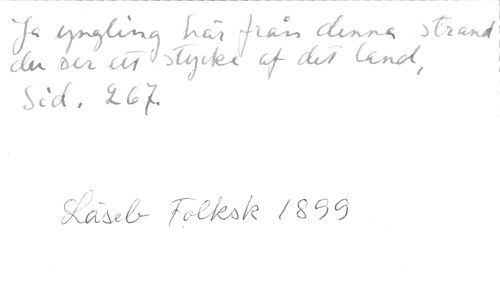 Ja yngling här från denna strand
du ser ett stycke af det land,
Sid. 267.
Läseb Folksk 1899